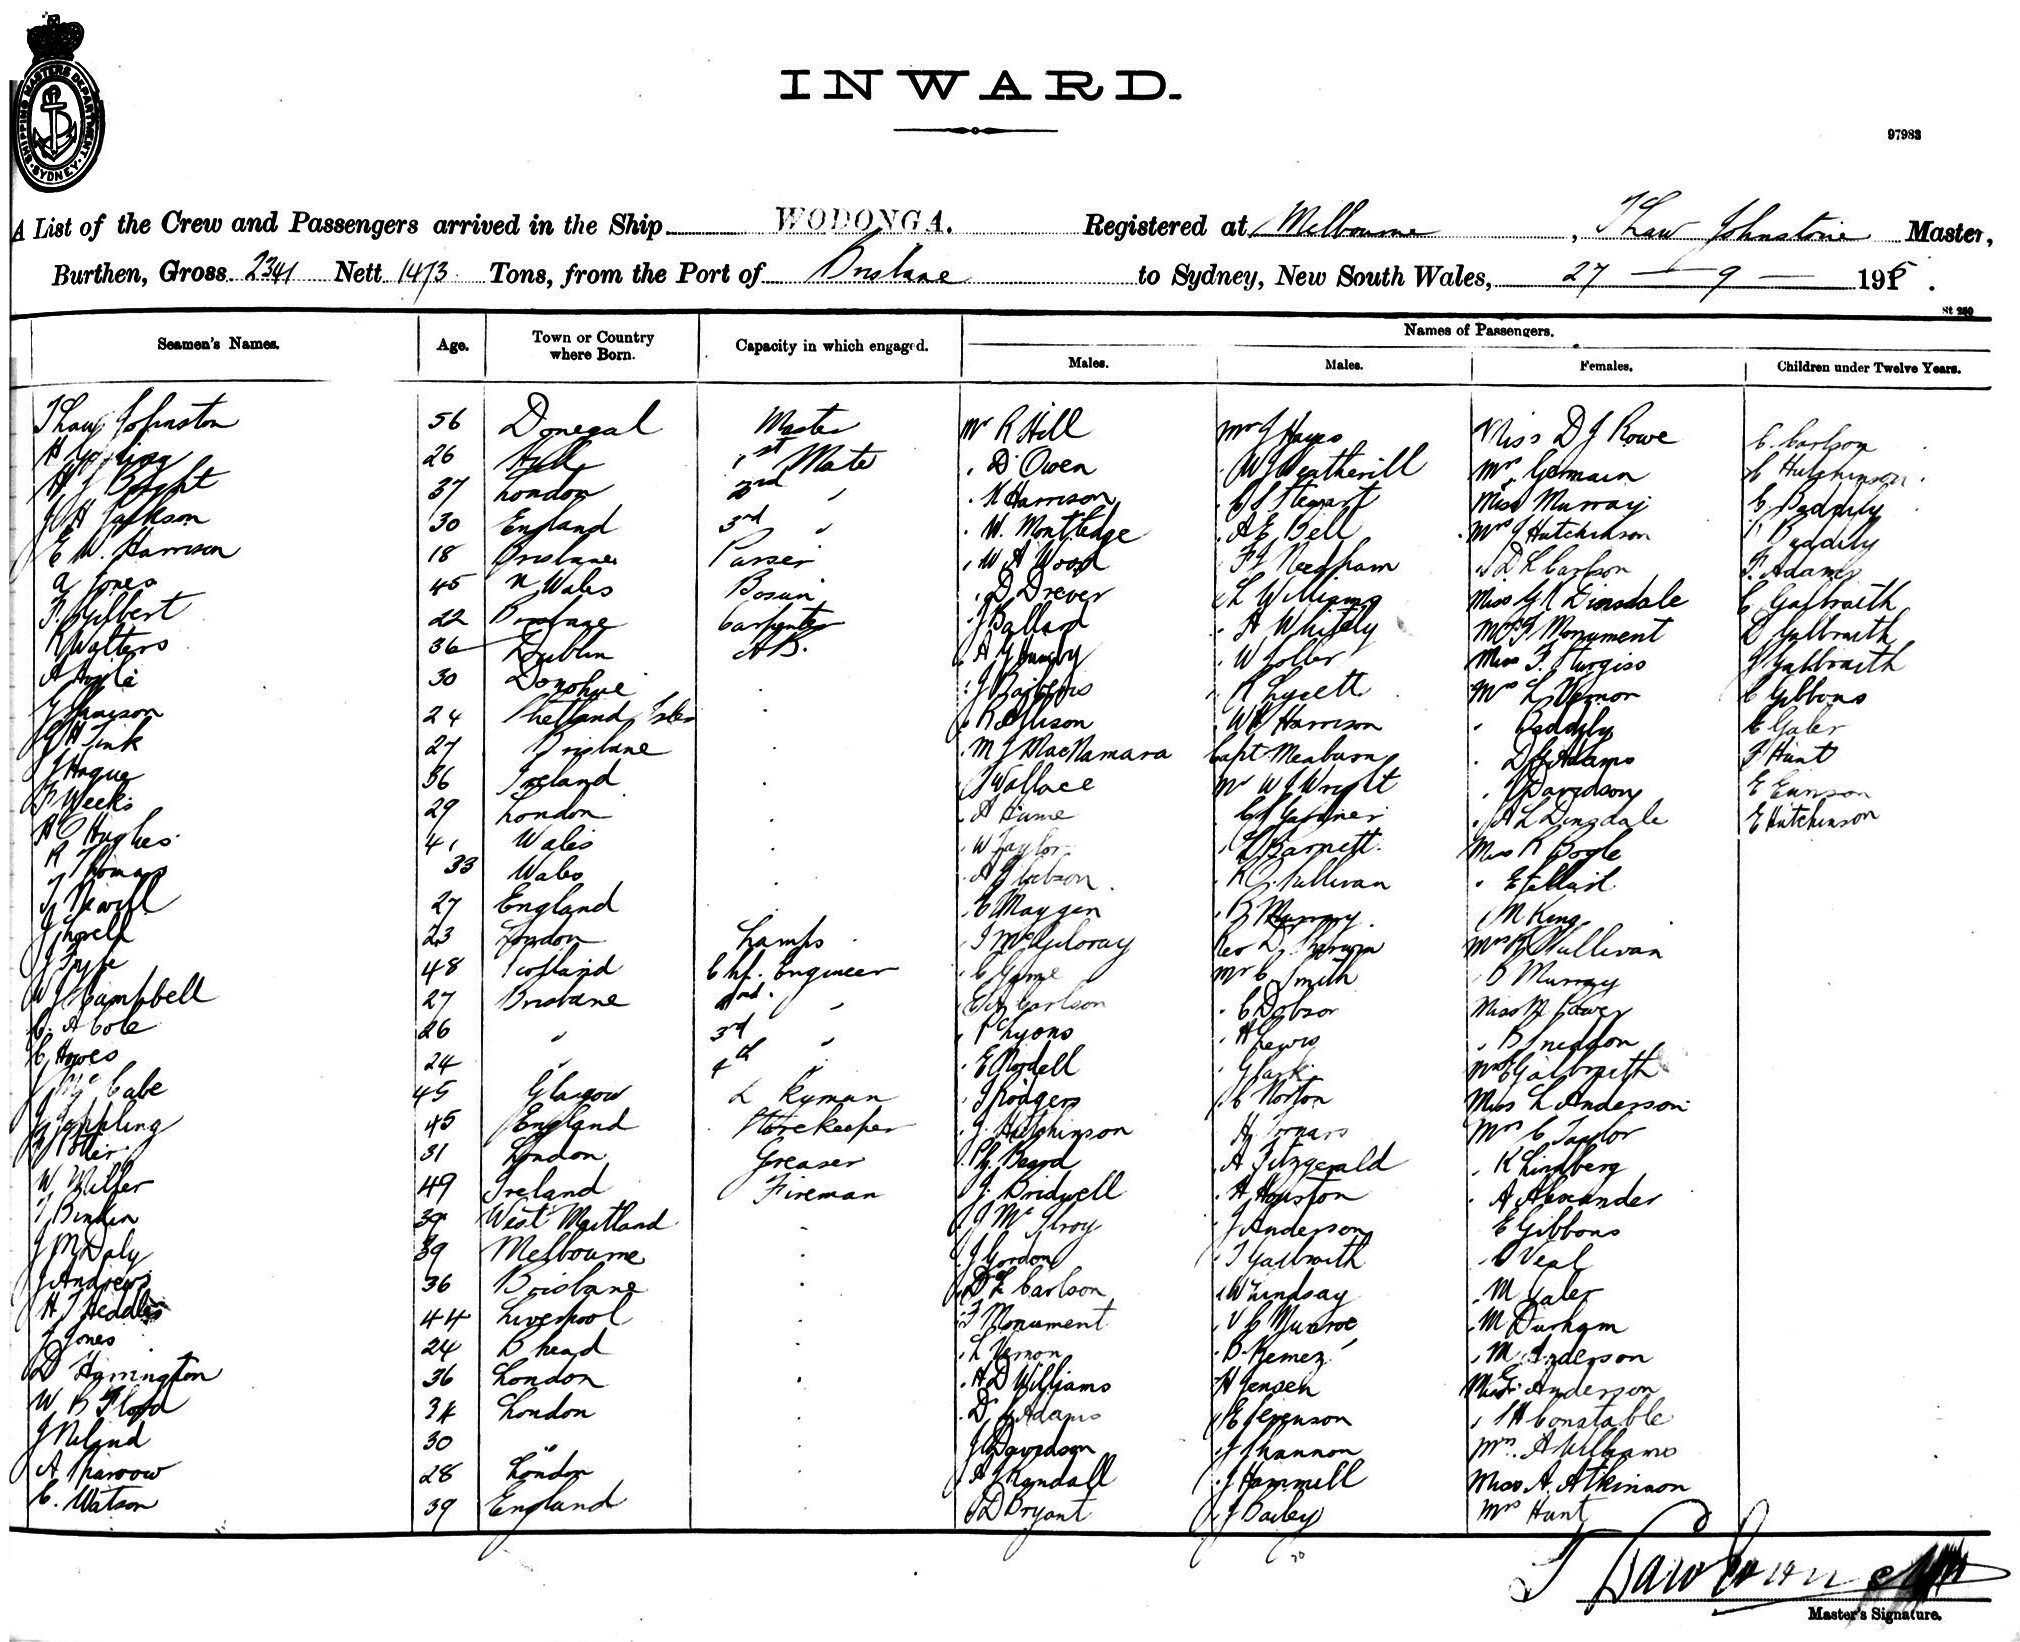 SHIPPING MASTERS DEPARTMENT. SYDNEY.
INWARD.
97983
A List of the Crew and Passengers arrived in the Ship WODONGA. Registered at Melbourne, T Shaw Johnstone Master,
Burthen, Gross 2341 Nett 1473 Tons, from the Port of Brisbane to Sydney, New South Wales, 27 — 9 — 191 .
St 250
Names of Passengers.
Seamen's Names. Age. Town or Country where Born. Capacity in which engaged. Males. Males. Females. Children under Twelve Years.
T Shaw Johnston 56 Donegal Master Mr R Hill Mr J Hayes Miss D J Rowe C Carlson
26 Hull 1st Mate " D Owen " W J Weatherill Mrs Germain C Hutchinson
H J Bright 37 London 2nd " " K Harrison " C S Stewart Miss Murray C Baddily
J H Jackson 30 England 3rd " " W. Montledge " A E Bell Mrs J Hutchinson Baddily
E W. Harrison 18 Brisbane Purser " W A Wood " F J Needham " D L Carlson F. Adams
A Jones 45 N Wales Bosun " D Drever " L Williams Miss G R Dinsdale C Galbraith
F. Gilbert 22 Brisbane Carpenter " J Ballard " H Whitely Mrs F Monument D Galbraith
R Watters 36 Dublin A B. " A W Miss F. Sturgiss J Galbraith
30 Donohue " J " R Lysett Mrs L Vernon C Gibbons
24 Shetland Isles " R Allison " W H Harrison " Baddily C Galer
G H Tink 27 Brisbane " M J MacNamara Capt Meaburn " D G Adams F Hunt
J Hague 36 Ireland " J Wallace Mr W J Wright " J Davidson E Eunson
F Weeks 29 London " A Hume " C S Gardner " A L Dingdale E Hutchinson
H O Hughes 41 Wales " W Taylor " L Barnett. Miss R Bogle
R Thomas 33 Wales " A J " R O. Sullivan " E
T Newill 27 England " C Maygen " B Murray " M King
J Lovell 23 London Lamps " J McGiloray Rev D. Mrs R Sullivan
J Fyfe 48 Scotland Chf. Engineer " C Game Mr C Smith " B Murray
W J Campbell 27 Brisbane 2nd. " " E A Carlson " C Dobson Miss M Power
C. A Cole 26 " 3rd " " P Lyons " H Lewis " B Sneddon
C Howes 24 " 4th " " E Nordell " G Lark Mrs E Galbraith
J McCabe 45 Glasgow L Ryman " J Rodgers " C Norton Miss L Anderson
J Toppling 45 England Storekeeper " J. Hutchinson " H. Mrs C Taylor
31 London Greaser " Beard " A Fitzgerald " K Lindberg
W Miller 49 Ireland Fireman " J. Bridwell " H Houston " A Alexander
T Binkin 39 West Maitland " J McIlroy " J Anderson E Gibbons
J M Daly 39 Melbourne " J Gordon " T Galbraith " C Veal
J Andrews 36 Brisbane " D L Carlson " W Lindsay " M Galer
H J Heddles 44 Liverpool " F Monument " V C Munroe " M Durham
J Jones 24 B head " L Vernon " B Kemez " M Anderson
D Harrington 36 London " H D Williams " H Jensen Miss E Anderson
W B Flood 34 London " D G Adams " E Stevenson " H Constable
J Nelind 30 " " J Davidson " J Shannon Mrs. A Williams
A Sparrow 28 London " A J Kendall " J Hammill Miss A. Atkinson
C. Watson 39 England " D Bryant " J Bailey Mrs Hunt
T Shaw Johnston
Master's Signature.